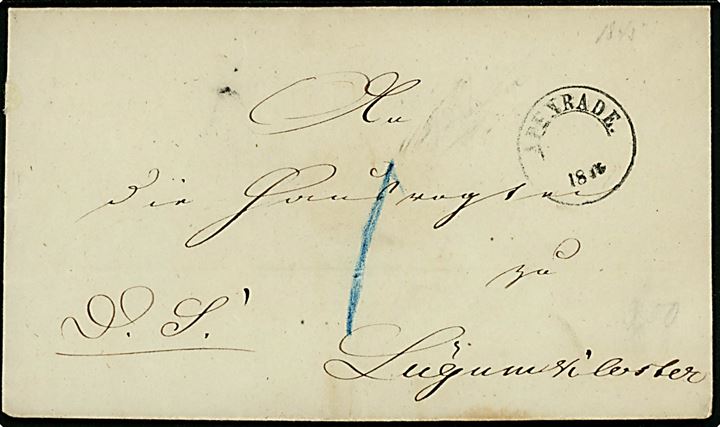 APENRADE.
18
An
die Hausvogtei
zu
D. S.
Lügumkloster
1